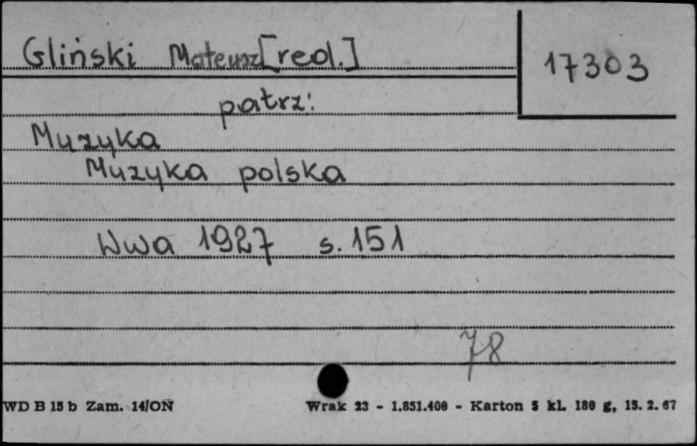 Gliński Mateusz [red.]
17303
patrz:
Muzyka
Muzyka polska
Wwa 1927 s. 151
78
WD B 15 b Zam. 14/ON
Wrak 23 - 1.851.400 - Karton 5 kl. 180 g, 15. 2. 67